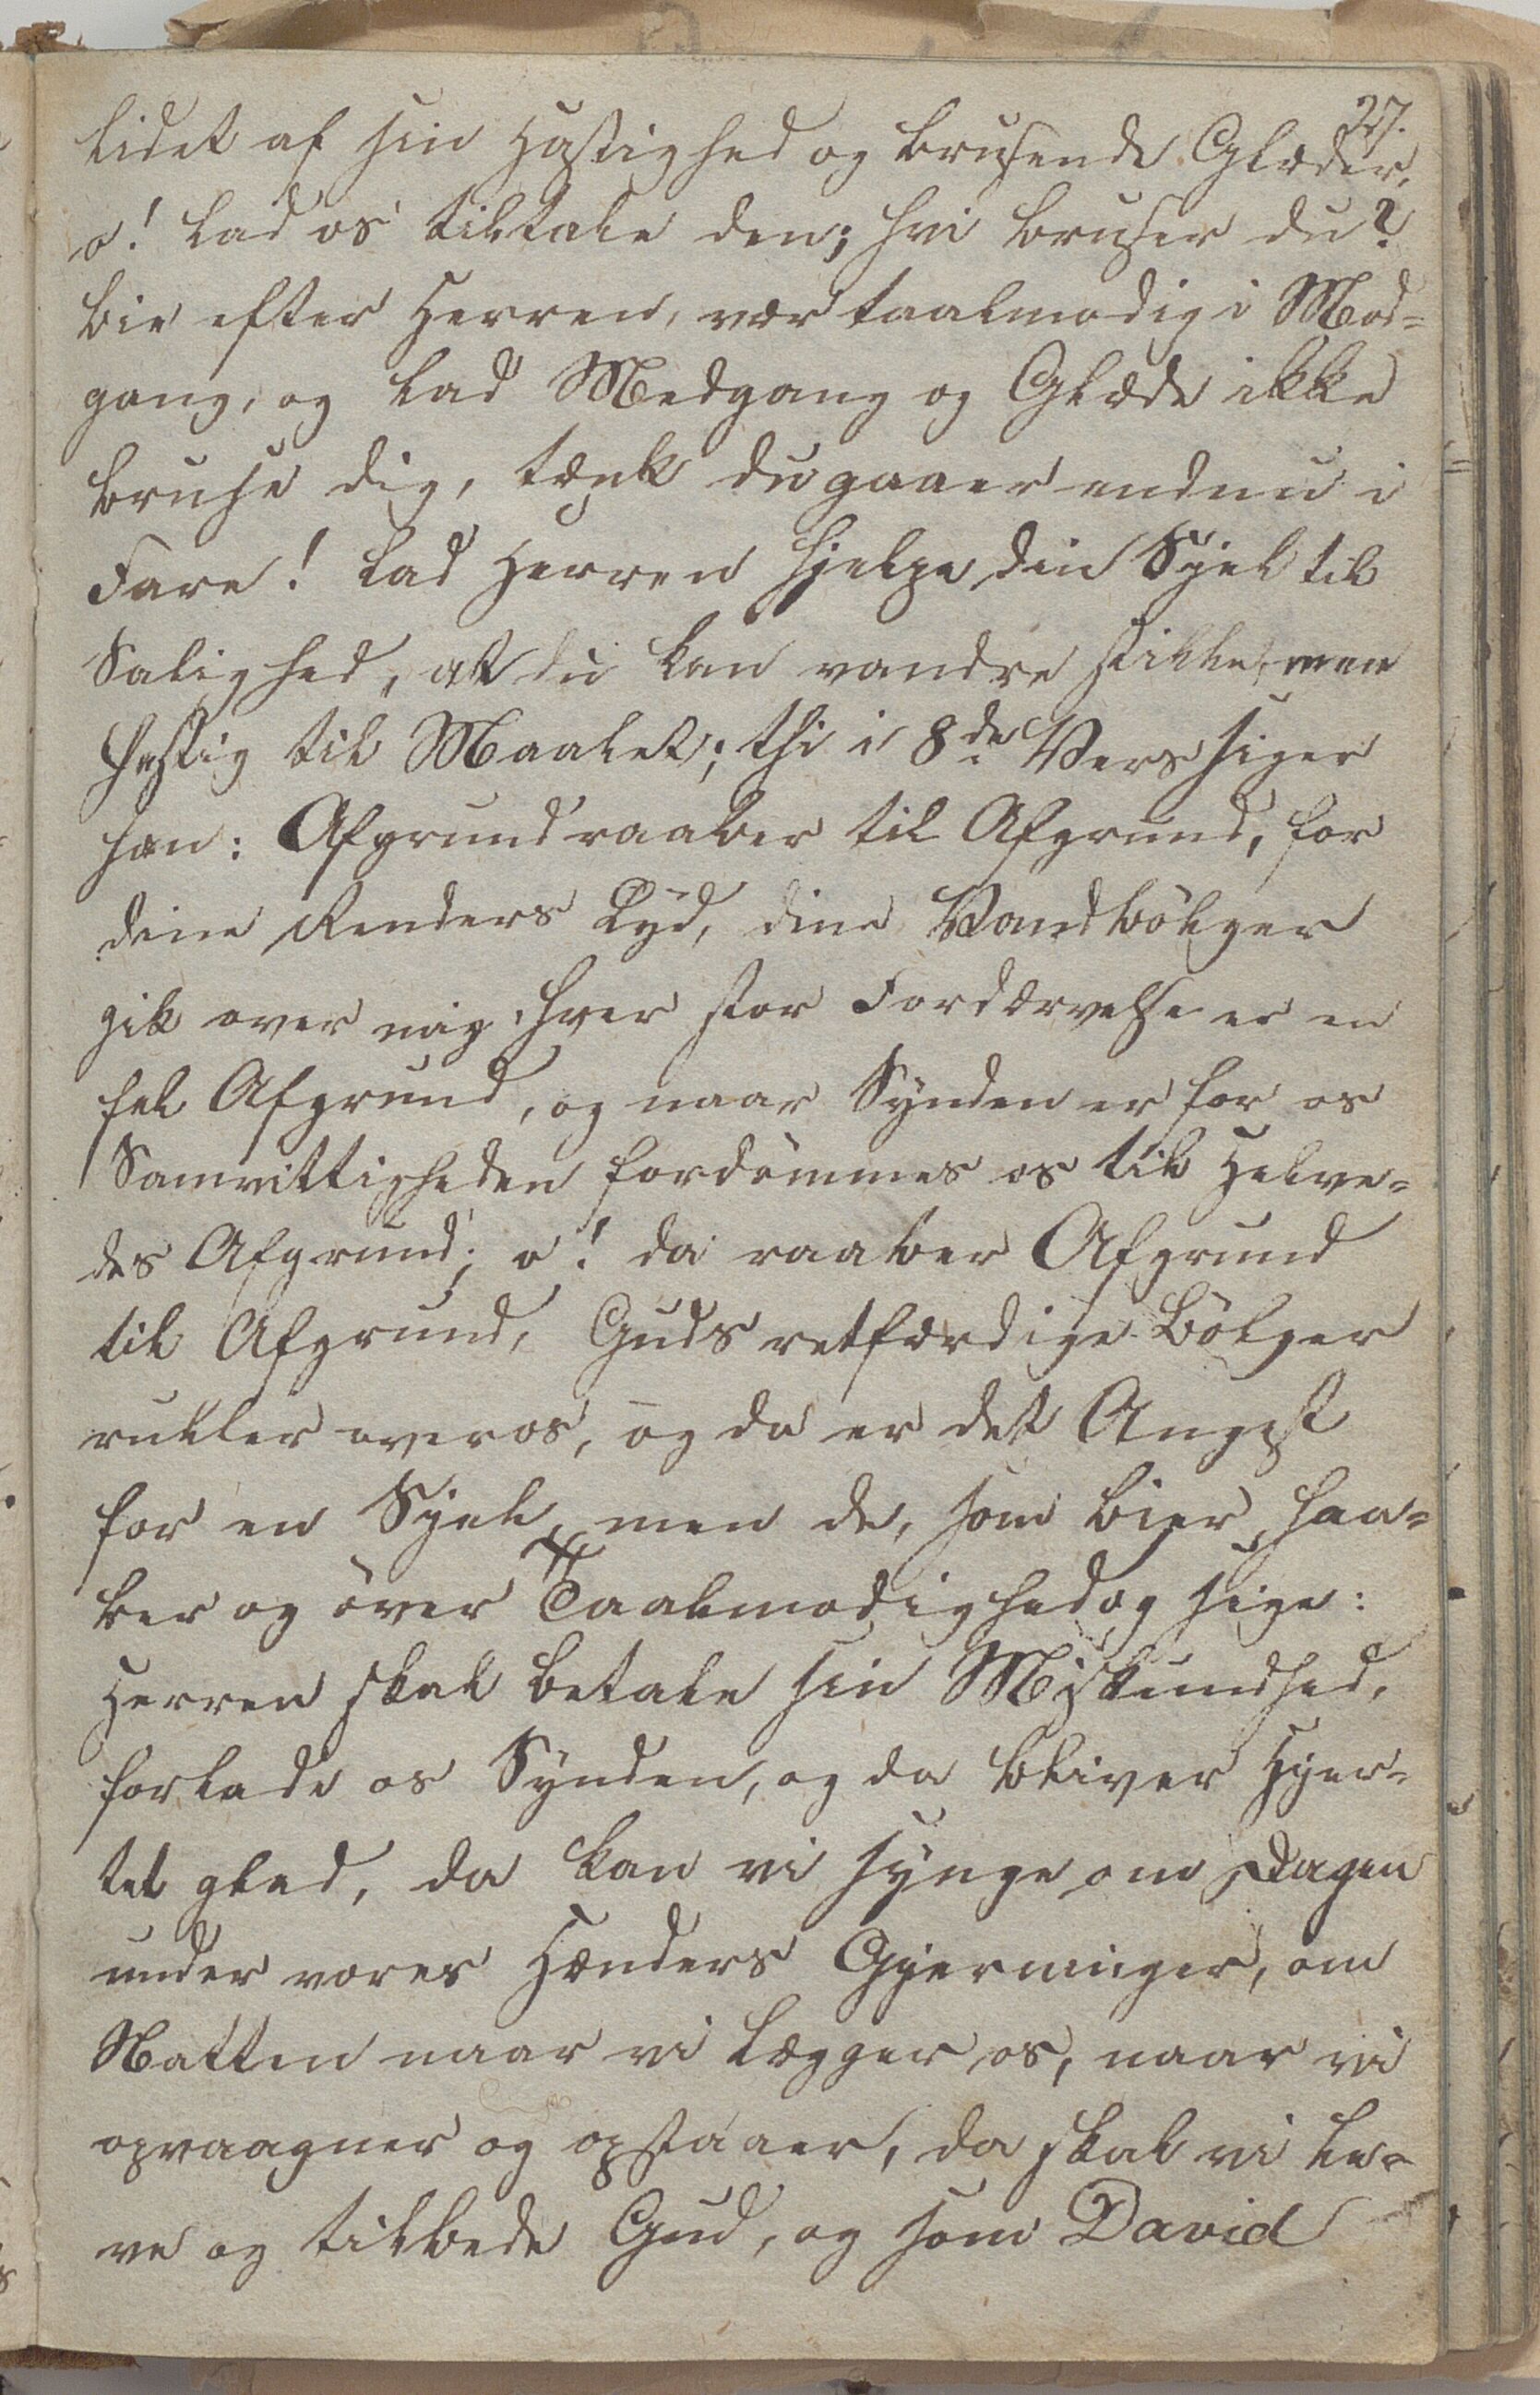 27.
lidet af sin Hastighed og brusende Glæder,
o! lad os tiltale den; hvi bruser du?
bie efter Herren, vær taalmodig i Mod=
gang, og lad Medgang og Glæde ikke
bruse dig, tænk du gaaer endnu i
Fare! lad Herren hjelpe din Sjel til
Salighed, at du kan vandre stille, men
hastig til Maalet; thi i 8de Vers siger
han: Afgrund raaber til Afgrund, for
dine Renders Lyd, dine Vandbölger
gik over mig, hver stor Fordærvelse er en
fæl Afgrund, og naar Synden er for os
Samvittigheden fordömmes os til Helve=
des Afgrund; o! da raaber Afgrund
til Afgrund, Guds retfærdige Bölger
ruller over os, og da er det Angest
for en Sjel, men de, som bier, haa=
ber og över Taalmodighed og sige:
Herren skal betale sin Miskundhed,
forlade os Synden, og da bliver Hjer=
tet glad, da kan vi synge om Dagen
under vores Hænders Gjerninger, om
Natten naar vi lægger os, naar vi
opvaagner og opstaaer, da skal vi le=
ve og tilbede Gud, og som David